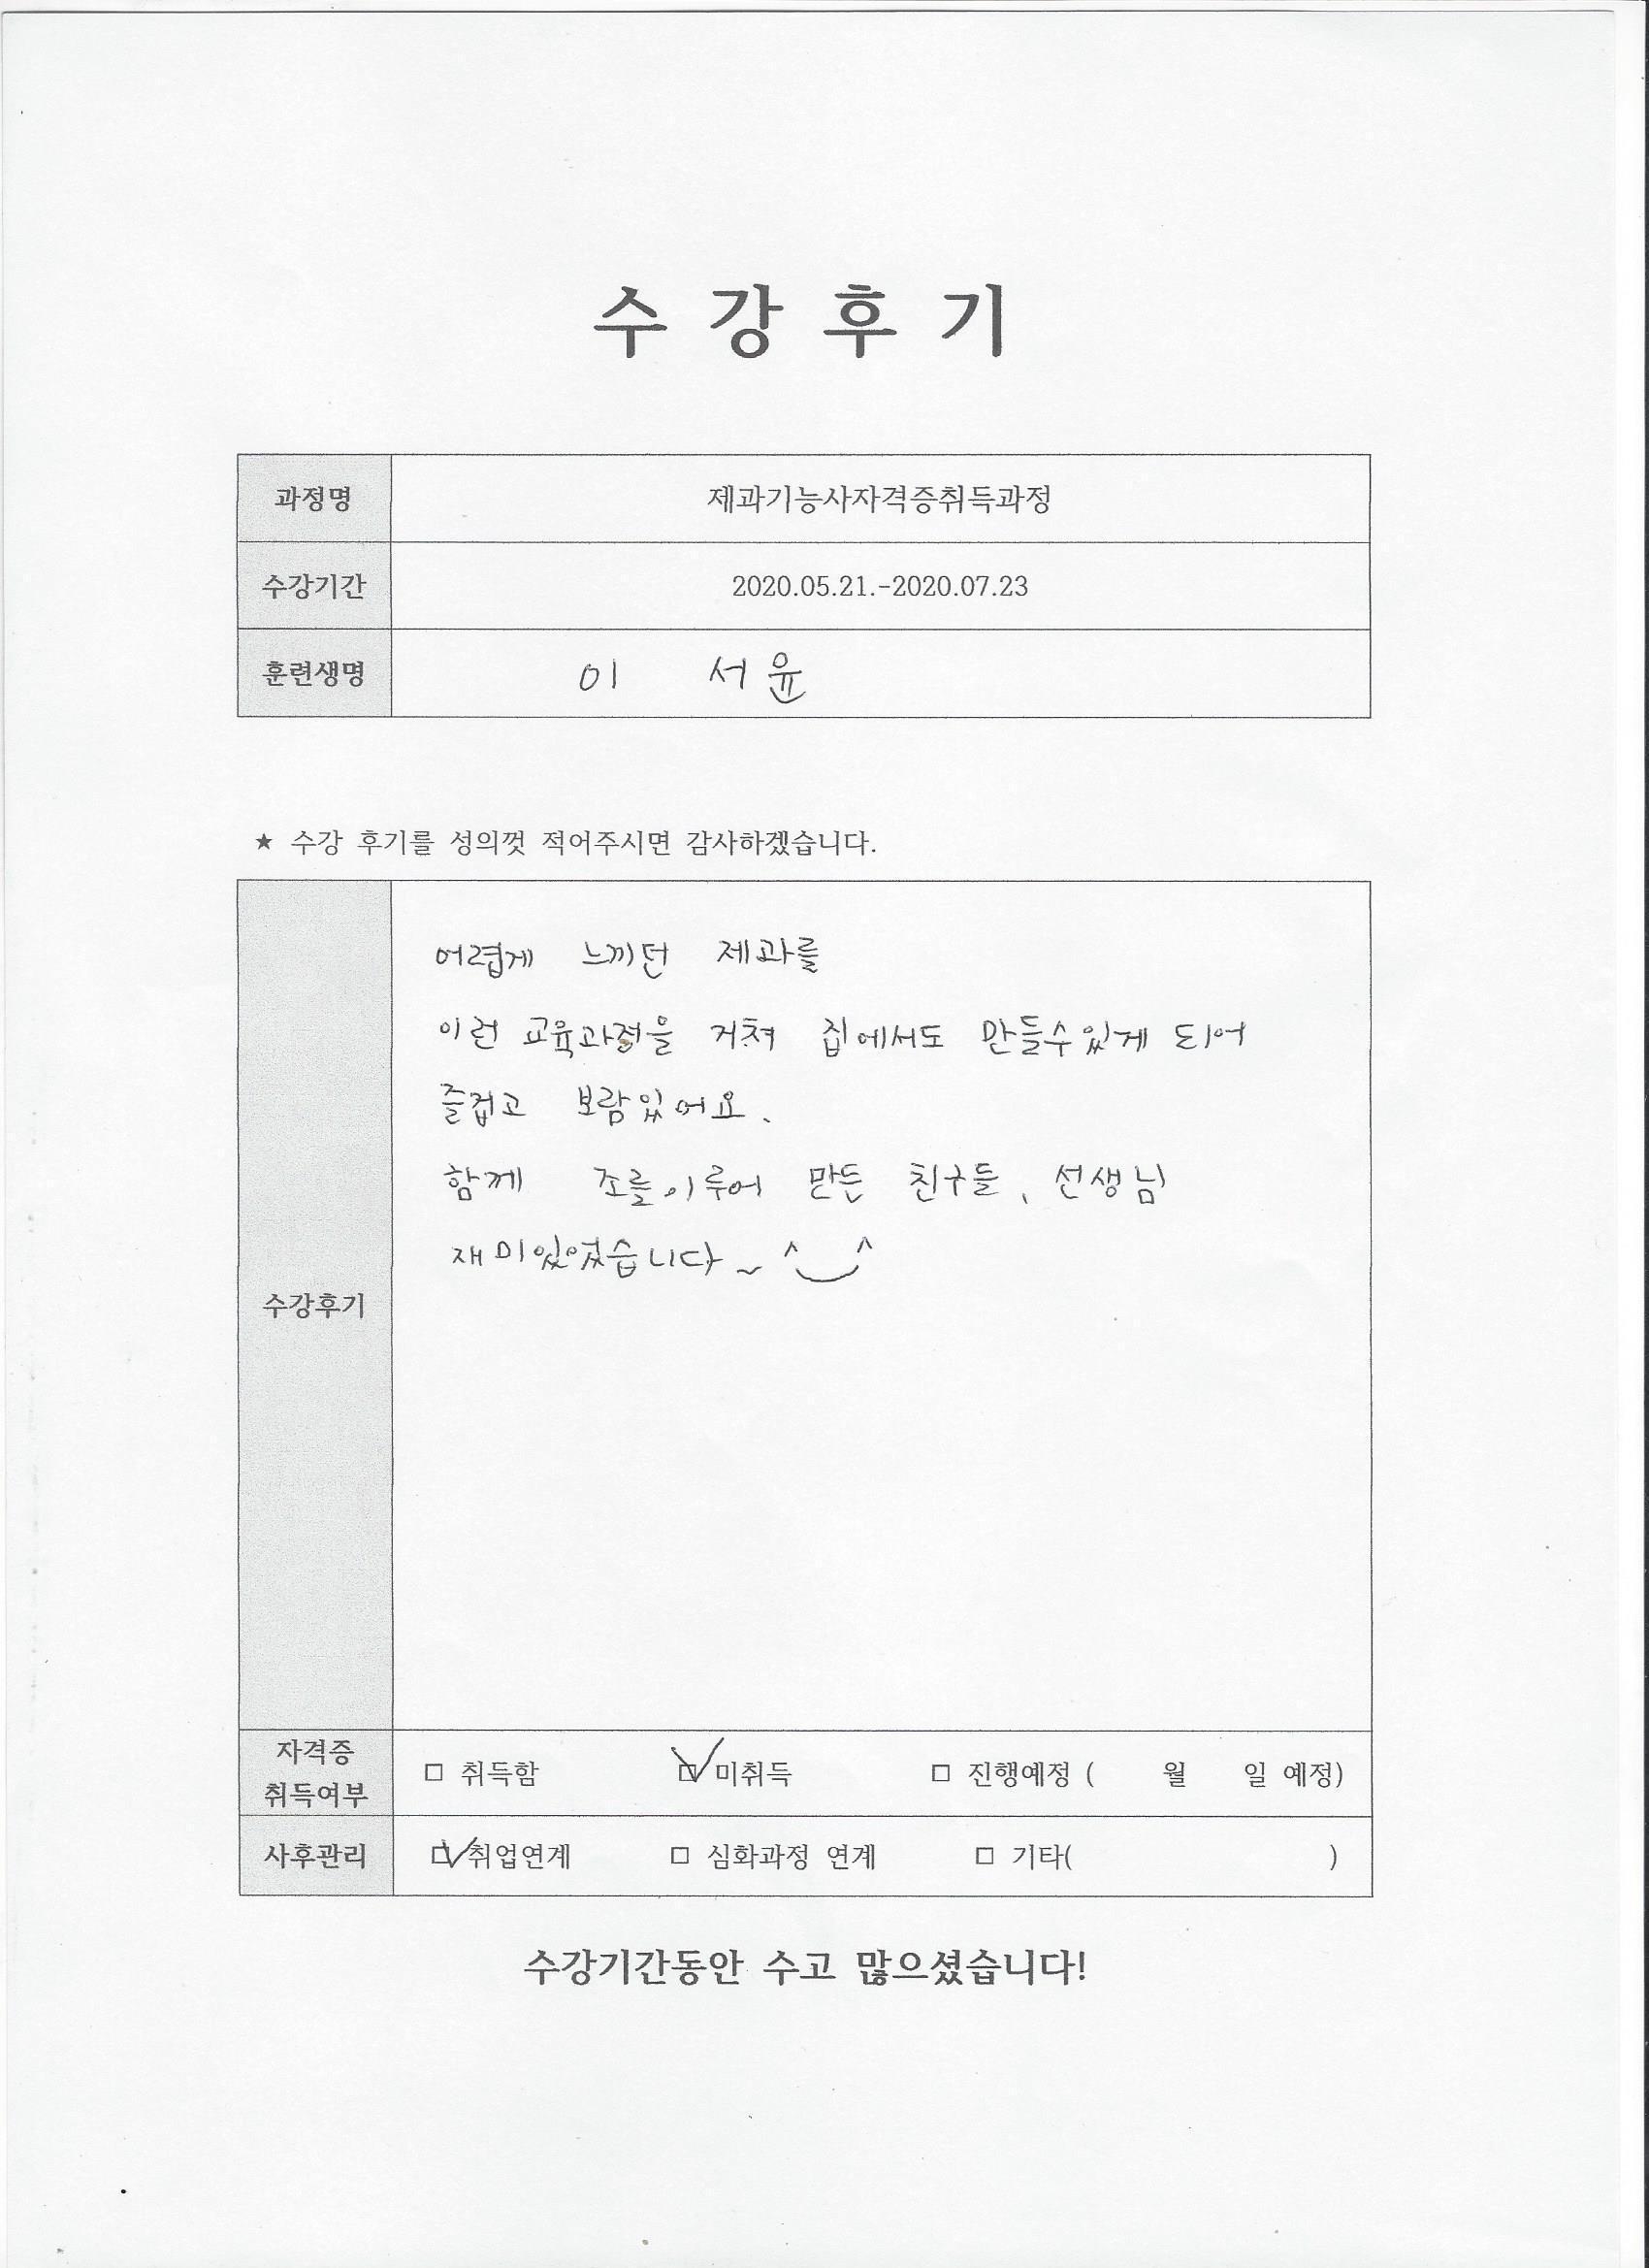 수 강 후 기
과정명 제과기능사자격증취득과정
수강기간 2020.05.21.-2020.07.23
훈련생명 이 서윤
★ 수강 후기를 성의껏 적어주시면 감사하겠습니다.
수강후기
어렵게 느끼던 제과를
이런 교육과정을 거쳐 집에서도 만들수있게 되어
즐겁고 보람있어요.
함께 조를이루어 만든 친구들, 선생님
재미있었습니다~ ^‿^
자격증 취득여부 □ 취득함 ☑ 미취득 □ 진행예정 ( 월 일 예정)
사후관리 ☑ 취업연계 □ 심화과정 연계 □ 기타( )
수강기간동안 수고 많으셨습니다!